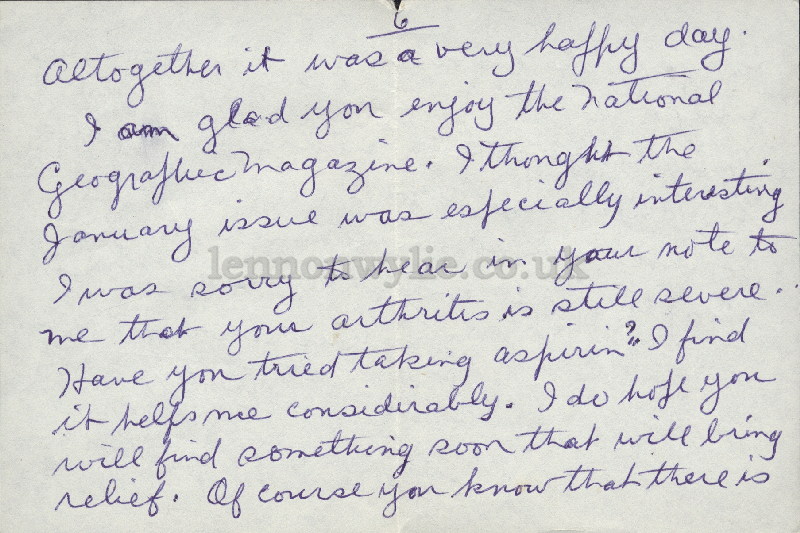 6
Altogether it was a very happy day.
I am glad you enjoy the National
Geographic Magazine. I thought the
January issue was especially interesting
lennonwylie.co.uk
I was sorry to hear in your note to
me that your arthritis is still severe.
Have you tried taking aspirin? I find
it helps me considerably. I do hope you
will find something soon that will bring
relief. Of course you know that there is